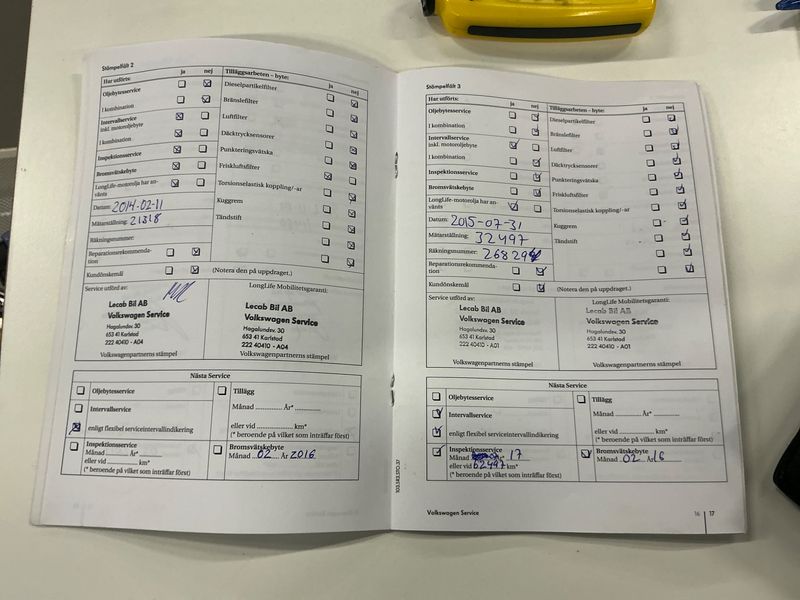 Stämpelfält 2
Har utförts: ja nej
Oljebytesservice
I kombination
Intervallservice
inkl. motoroljebyte
I kombination
Inspektionsservice
Bromsvätskebyte
LongLife-motorolja har an-
vänts
Datum: 2014-02-11
Mätarställning: 21818
Räkningsnummer:
Reparationsrekommenda-
tion
Kundönskemål
Tilläggsarbeten – byte: ja nej
Dieselpartikelfilter
Bränslefilter
Luftfilter
Däcktrycksensorer
Punkteringsvätska
Friskluftsfilter
Torsionselastisk koppling/-ar
Kuggrem
Tändstift
(Notera den på uppdraget.)
Service utförd av:
Lecab Bil AB
Volkswagen Service
Hagalundsv. 30
653 41 Karlstad
222 40410 - A04
Volkswagenpartnerns stämpel
LongLife Mobilitetsgaranti:
Lecab Bil AB
Volkswagen Service
Hagalundsv. 30
653 41 Karlstad
222 40410 - A04
Volkswagenpartnerns stämpel
Nästa Service
Oljebytesservice
Intervallservice
enligt flexibel serviceintervallindikering
Inspektionsservice
Månad ............ År* ............
eller vid ............ km*
(* beroende på vilket som inträffar först)
Tillägg
Månad ............ År* ............
eller vid ............ km*
(* beroende på vilket som inträffar först)
Bromsvätskebyte
Månad 02 År 2016
Stämpelfält 3
Har utförts: ja nej
Oljebytesservice
I kombination
Intervallservice
inkl. motoroljebyte
I kombination
Inspektionsservice
Bromsvätskebyte
LongLife-motorolja har an-
vänts
Datum: 2015-07-31
Mätarställning: 32497
Räkningsnummer: 26829
Reparationsrekommenda-
tion
Kundönskemål
Tilläggsarbeten – byte: ja nej
Dieselpartikelfilter
Bränslefilter
Luftfilter
Däcktrycksensorer
Punkteringsvätska
Friskluftsfilter
Torsionselastisk koppling/-ar
Kuggrem
Tändstift
(Notera den på uppdraget.)
Service utförd av:
Lecab Bil AB
Volkswagen Service
Hagalundsv. 30
653 41 Karlstad
222 40410 - A01
Volkswagenpartnerns stämpel
LongLife Mobilitetsgaranti:
Lecab Bil AB
Volkswagen Service
Hagalundsv. 30
653 41 Karlstad
222 40410 - A01
Volkswagenpartnerns stämpel
Nästa Service
Oljebytesservice
Intervallservice
enligt flexibel serviceintervallindikering
Inspektionsservice
Månad År* 17
eller vid 62497 km*
(* beroende på vilket som inträffar först)
Tillägg
Månad ............ År* ............
eller vid ............ km*
(* beroende på vilket som inträffar först)
Bromsvätskebyte
Månad 02 År 16
Volkswagen Service
16 | 17